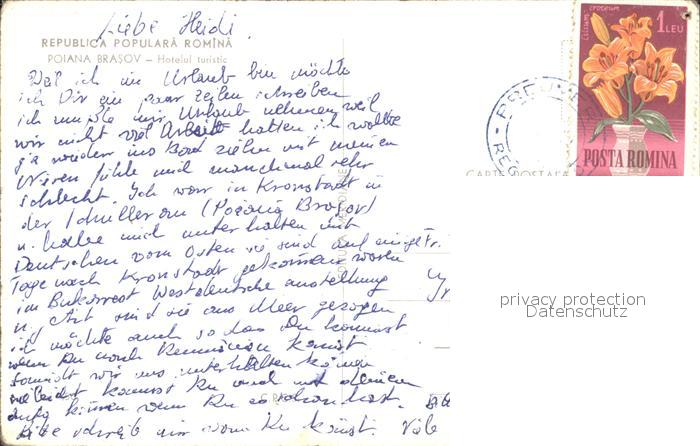 Liebe Heidi.
REPUBLICA POPULARĂ ROMÎNĂ
POIANA BRAȘOV — Hotelul turistic
Weil ich im Urlaub bin möchte
ich Dir ein paar Zeilen schreiben
ich mußte mir Urlaub nehmen weil
wir nicht viel Arbeit hatten ich wollte
ja wieder ins Bad ziehen mit meinen
Nieren fühle mich manchmal sehr
schlecht. Ich war in Kronstadt in
der Schulleram (Poiana Brașov)
u. habe mich unterhalten mit
Deutschen vom Osten sie sind auf einige
Tage nach Kronstadt gekommen waren
im Bukarest Westdeutsche austellung
u. sind sie ans Meer gezogen
ich möchte auch so das Du kommst
wenn Du nach Rumänien kommst
damit wir uns unterhalten können
vielleicht kommst Du und mit deinem
wenn Du es schon hast.
Bitte schreib mir wann Du kommst. Viele
CARTE POSTALĂ
croceum
Lilium
1 LEU
POSTA ROMINA
privacy protection
Datenschutz